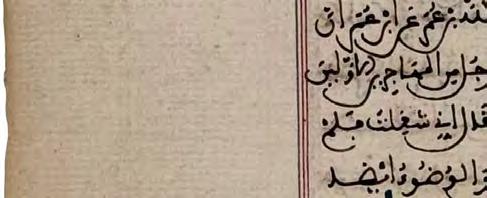 بن عمر عن ابن عمر ان
رجل من المهاجرين الاولين
قال اني شغلت فلم
والوضوء ايضا